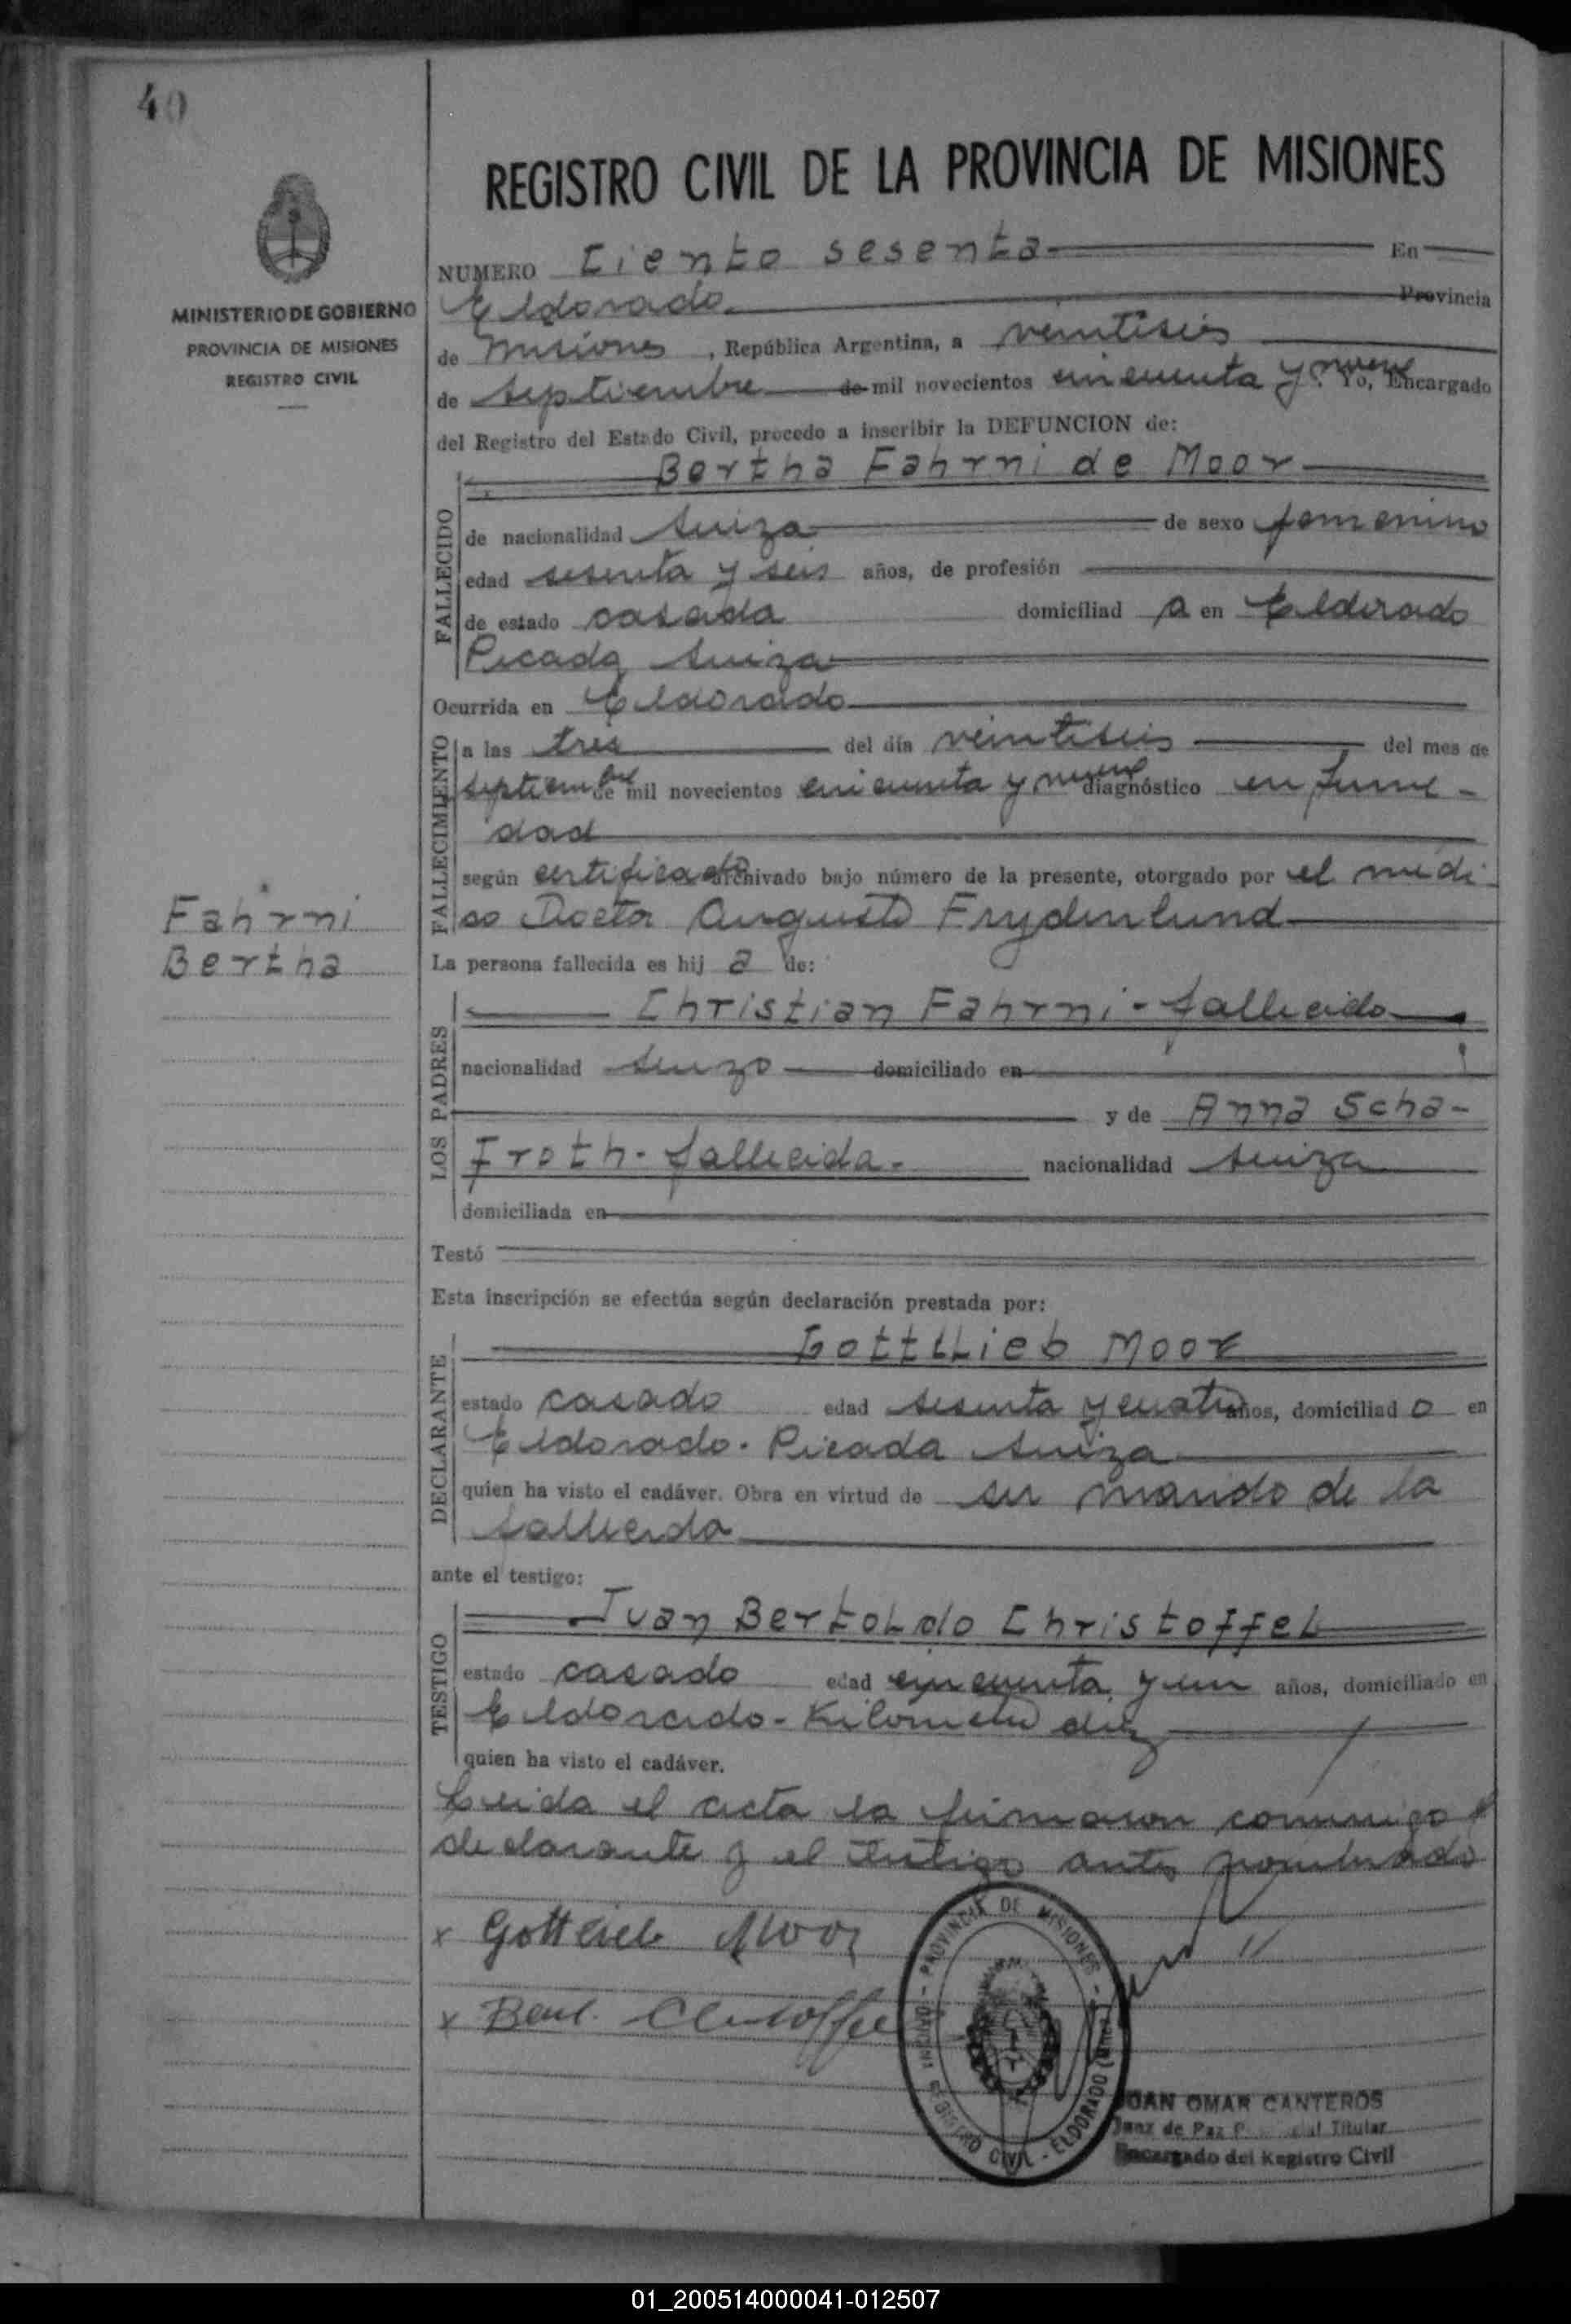 40
REGISTRO CIVIL DE LA PROVINCIA DE MISIONES
MINISTERIO DE GOBIERNO
PROVINCIA DE MISIONES
REGISTRO CIVIL
NUMERO Ciento sesenta En
Eldorado Provincia
de Misiones, República Argentina, a veintiseis
de septiembre de mil novecientos cincuenta y nueve. Yo, Encargado
del Registro del Estado Civil, procedo a inscribir la DEFUNCION de:
Bertha Fahrni de Moor
FALLECIDO
de nacionalidad suiza de sexo femenino
edad sesenta y seis años, de profesión
de estado casada domiciliad a en Eldorado
Picada Suiza
Ocurrida en Eldorado
FALLECIMIENTO
a las tres del día veintiseis del mes de
septiembre de mil novecientos cincuenta y nueve diagnóstico enferme-
dad
según certificado archivado bajo número de la presente, otorgado por el médi-
co Doctor Augusto Frydenlund
Fahrni
Bertha
La persona fallecida es hij a de:
LOS PADRES
Christian Fahrni - fallecido
nacionalidad suizo domiciliado en
y de Anna Scha-
froth - fallecida - nacionalidad suiza
domiciliada en
Testó
Esta inscripción se efectúa según declaración prestada por:
DECLARANTE
Gottllieb Moor
estado casado edad sesenta y cuatro años, domiciliad o en
Eldorado. Picada Suiza
quien ha visto el cadáver. Obra en virtud de ser marido de la
fallecida
ante el testigo:
TESTIGO
Juan Bertoldo Christoffel
estado casado edad cincuenta y un años, domiciliado en
Eldorado - Kilometro diez
quien ha visto el cadáver.
Leida el acta la firmaron conmigo el
declarante y el testigo antes nombrado
x Gottlieb Moor
x Bert. Christoffel
PROVINCIA DE MISIONES - REGISTRO CIVIL - ELDORADO
JUAN OMAR CANTEROS
Juez de Paz Titular
Encargado del Registro Civil
01_200514000041-012507